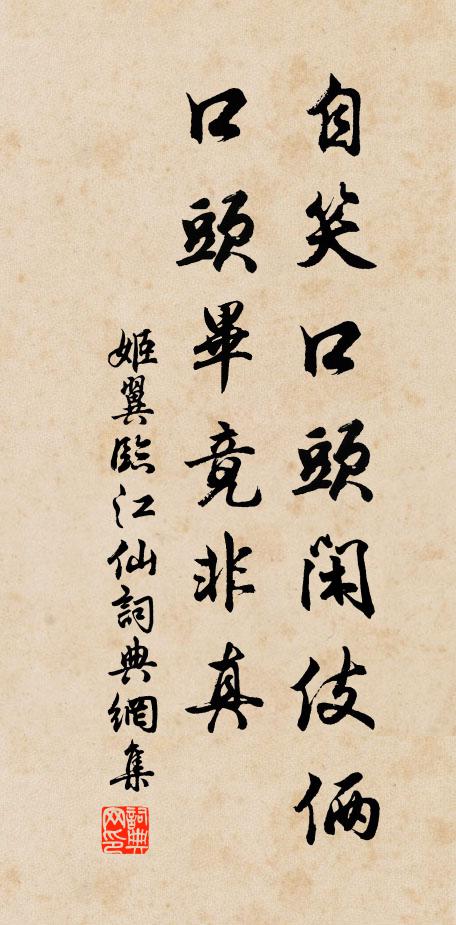 自笑口頭閑伎倆
口頭畢竟非真
姬翼臨江仙詞典網集
詞典网印